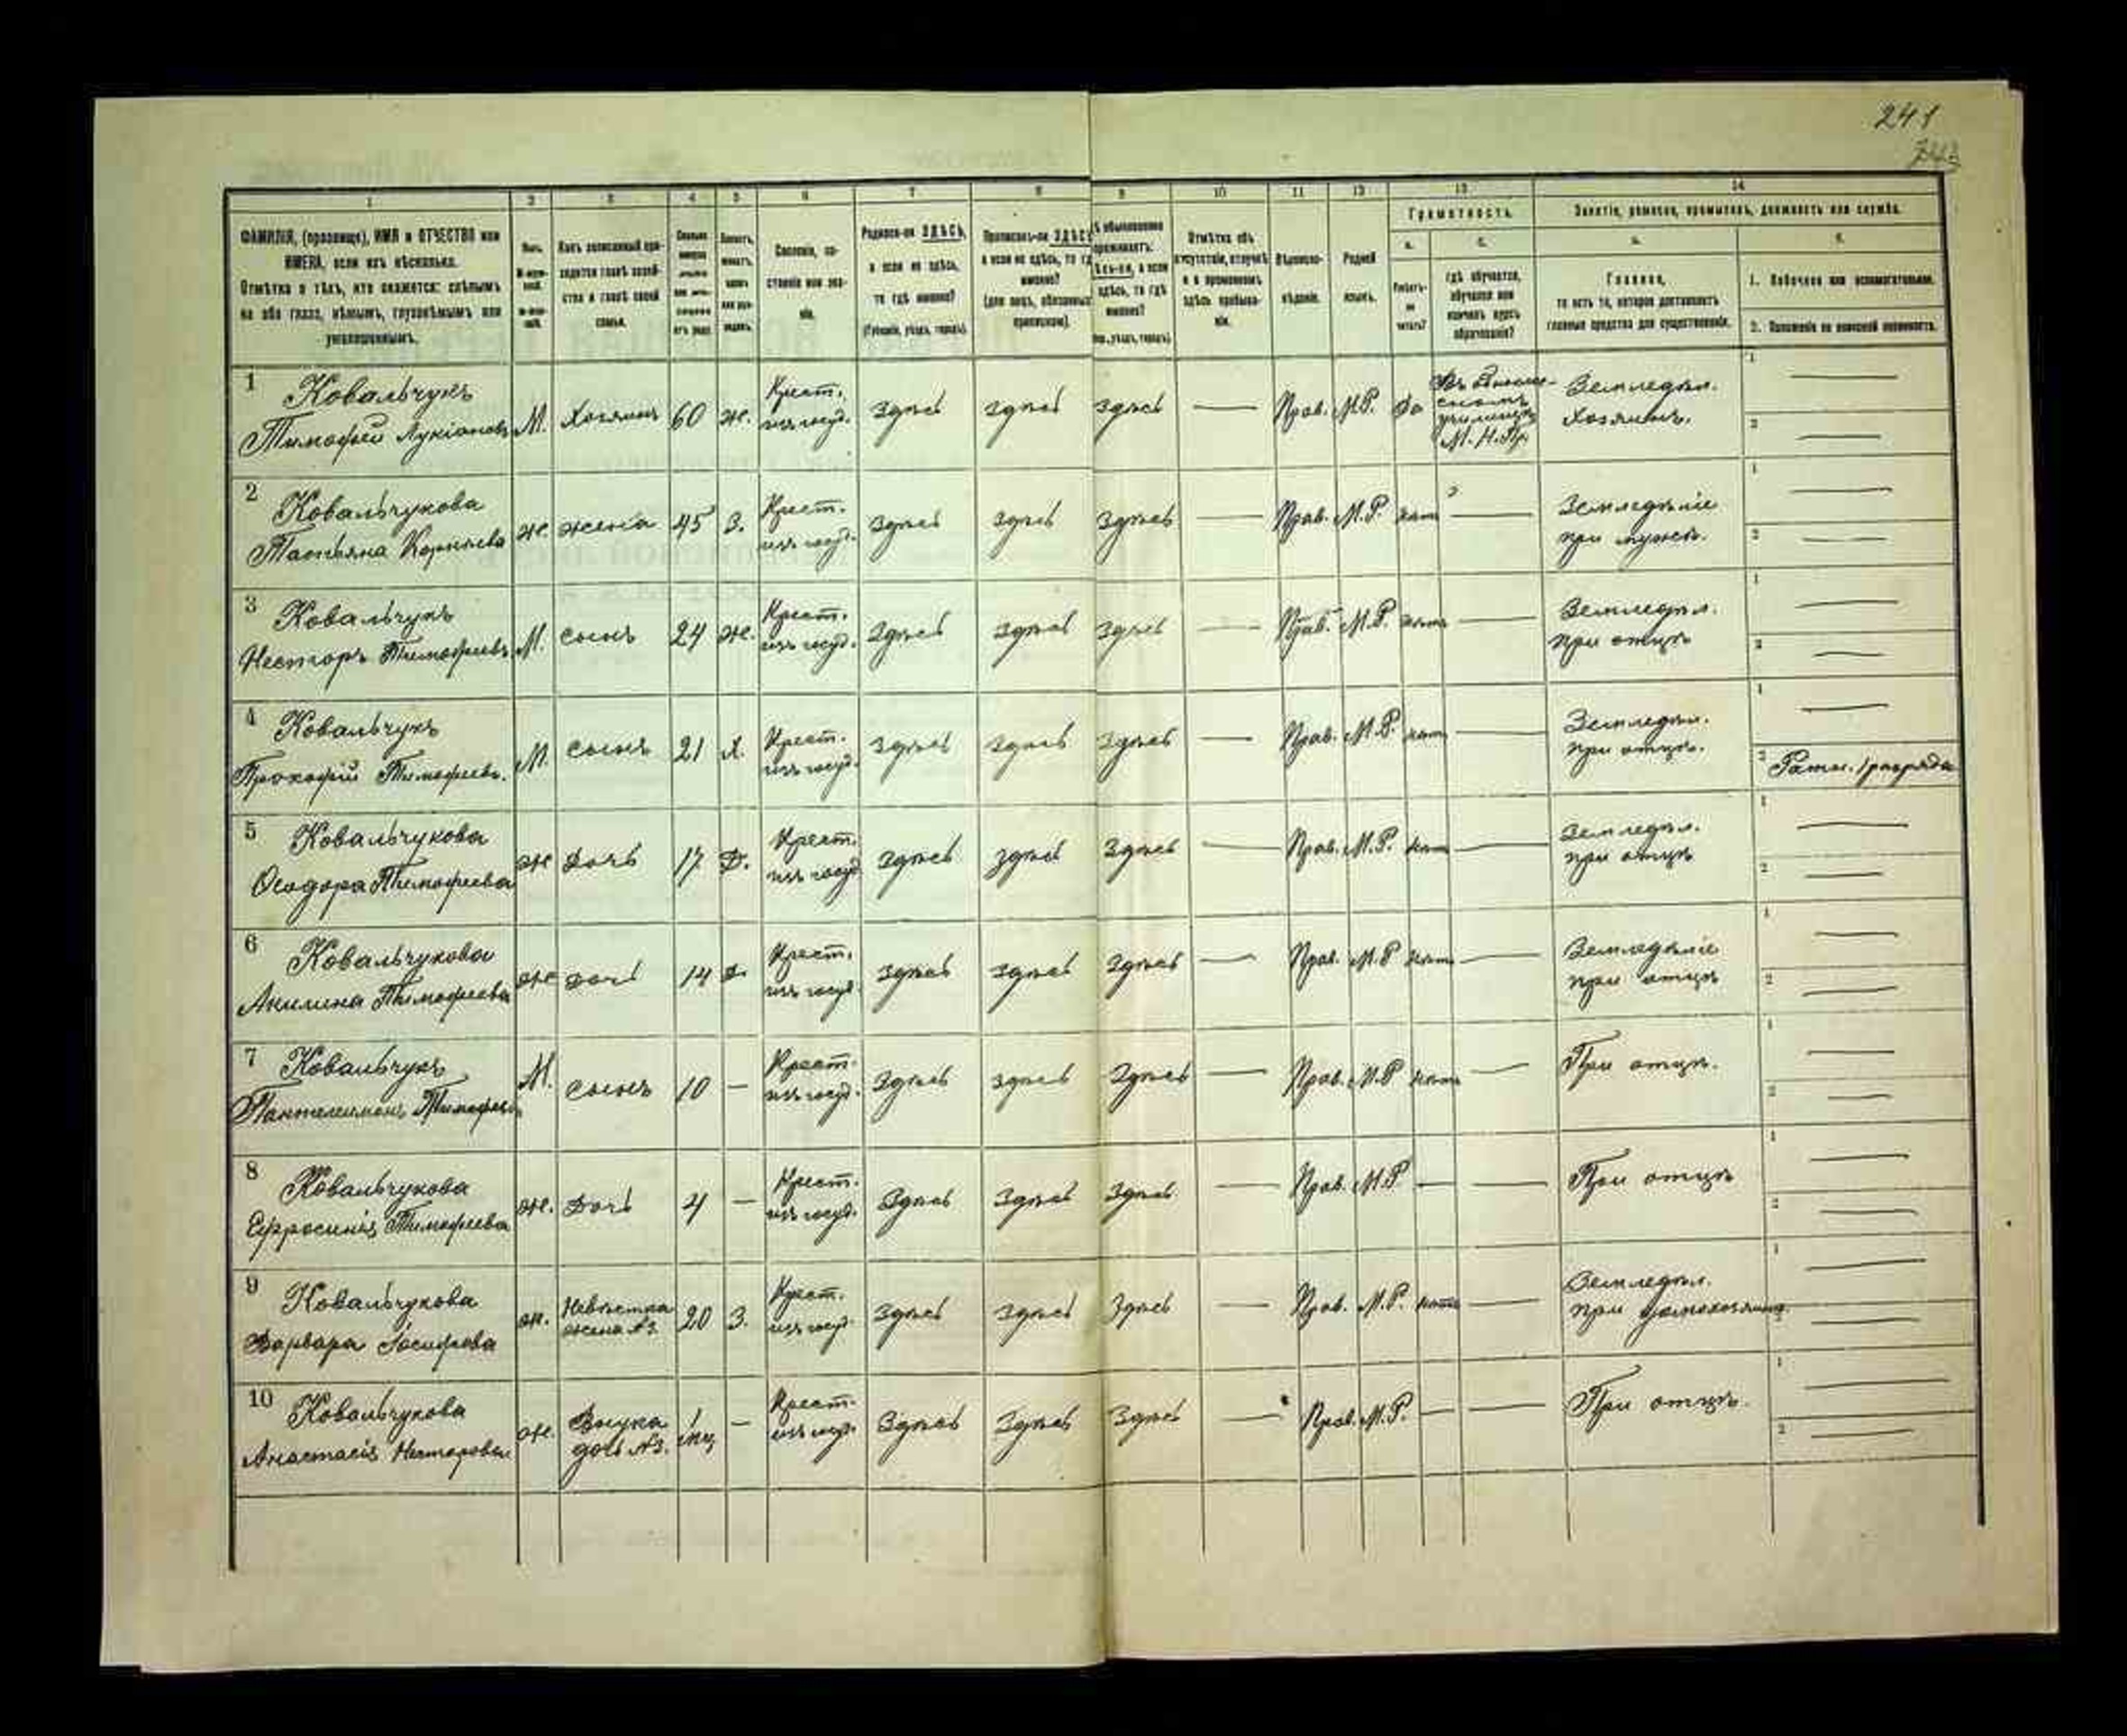 241
1 2 3 4 5 6 7 8 9 10 11 12 13 14
ФАМИЛІЯ, (прозвище), ИМЯ и ОТЧЕСТВО или
ИМЕНА, если ихъ нѣсколько.
Отмѣтка о тѣхъ, кто окажется: слѣпымъ
на оба глаза, нѣмымъ, глухонѣмымъ или
умалишеннымъ.
Полъ.
Какъ записанный при-
ходится главѣ хозяй-
ства и главѣ своей
семьи.
Сословіе, со-
стояніе или зва-
ніе.
Родился-ли ЗДѢСЬ,
а если не здѣсь,
то гдѣ именно?
(Губернія, уѣздъ, городъ).
Приписанъ-ли ЗДѢСЬ
а если не здѣсь, то гдѣ
именно?
(для лицъ, обязанныхъ
припиской).
обыкновенно
проживаетъ:
а если
здѣсь, то гдѣ
именно?
Отмѣтка объ
отсутствіи, отлучкѣ
и о временномъ
здѣсь пребыва-
ніи.
Вѣроиспо-
вѣданіе.
Родной
языкъ.
Грамотность.
а. б.
Умѣетъ-
ли
читать?
гдѣ обучается,
обучался или
кончилъ курсъ
образованія?
Занятіе, ремесло, промыселъ, должность или служба.
а. б.
Главное,
то есть то, которое доставляетъ
главныя средства для существованія.
1. Побочное или вспомогательное.
2. Положеніе по воинской повинности.
1 Ковальчукъ
Тимофей Лукіановъ М. Хозяинъ 60 ж. Крест. изъ госуд. Здѣсь Здѣсь Здѣсь — Прав. М.Р. Да училищѣ М. Н. Пр. Земледѣл. Хозяинъ. 1 — 2 —
2 Ковальчукова
Татьяна Корнѣева ж. жена 45 З. Крест. изъ госуд. Здѣсь Здѣсь Здѣсь — Прав. М.Р. нѣтъ — Земледѣліе при мужѣ. 1 — 2 —
3 Ковальчукъ
Несторъ Тимофеевъ М. сынъ 24 ж. Крест. изъ госуд. Здѣсь Здѣсь Здѣсь — Прав. М.Р. нѣтъ — Земледѣл. при отцѣ 1 — 2 —
4 Ковальчукъ
Прокофій Тимофеевъ. М. сынъ 21 Х. Крест. изъ госуд. Здѣсь Здѣсь Здѣсь — Прав. М.Р. нѣтъ — Земледѣл. при отцѣ. 1 — 2 Ратн. 1 разряда
5 Ковальчукова
Ѳеодора Тимофеева ж Дочь 17 Д. Крест. изъ госуд. Здѣсь Здѣсь Здѣсь — Прав. М.Р. нѣтъ — Земледѣл. при отцѣ 1 — 2 —
6 Ковальчукова
Акилина Тимофеева ж дочь 14 Д. Крест. изъ госуд. Здѣсь Здѣсь Здѣсь — Прав. М.Р нѣтъ — Земледѣліе при отцѣ 1 — 2 —
7 Ковальчукъ
Пантелимонъ Тимофеевъ М. сынъ 10 — Крест. изъ госуд. Здѣсь Здѣсь Здѣсь — Прав. М.Р нѣтъ — При отцѣ. 1 — 2 —
8 Ковальчукова
Ефросинія Тимофеева ж. Дочь 4 — Крест. изъ госуд. Здѣсь Здѣсь Здѣсь — Прав. М.Р — — При отцѣ 1 — 2 —
9 Ковальчукова
Варвара Іосифова ж. Невѣстка жена №3. 20 З. Крест. изъ госуд. Здѣсь Здѣсь Здѣсь — Прав. М.Р. нѣтъ — Земледѣл. при домохозяинѣ. 1 — 2 —
10 Ковальчукова
Анастасія Несторова ж. Внука дочь №3. 1 мц — Крест. изъ госуд. Здѣсь Здѣсь Здѣсь — Прав. М.Р. — — При отцѣ. 1 — 2 —